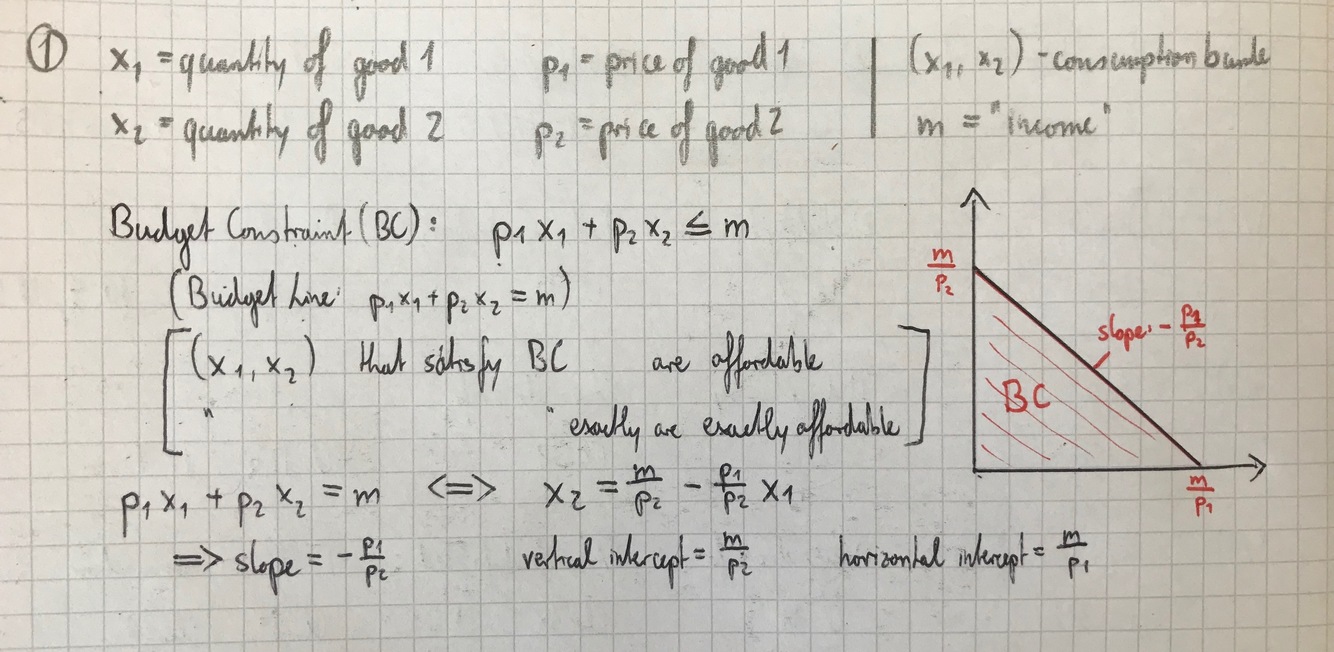 ① x₁ = quantity of good 1 p₁ = price of good 1 | (x₁, x₂) - consumption bundle
x₂ = quantity of good 2 p₂ = price of good 2 | m = "income"
Budget Constraint (BC): p₁ x₁ + p₂ x₂ ≤ m
(Budget Line: p₁x₁ + p₂x₂ = m)
[(x₁, x₂) that satisfy BC are affordable
" " exactly are exactly affordable]
p₁ x₁ + p₂ x₂ = m <=> x₂ = m/p₂ - p₁/p₂ x₁
=> slope = - p₁/p₂ vertical intercept = m/p₂ horizontal intercept = m/p₁
m/p₂
slope: - p₁/p₂
BC
m/p₁